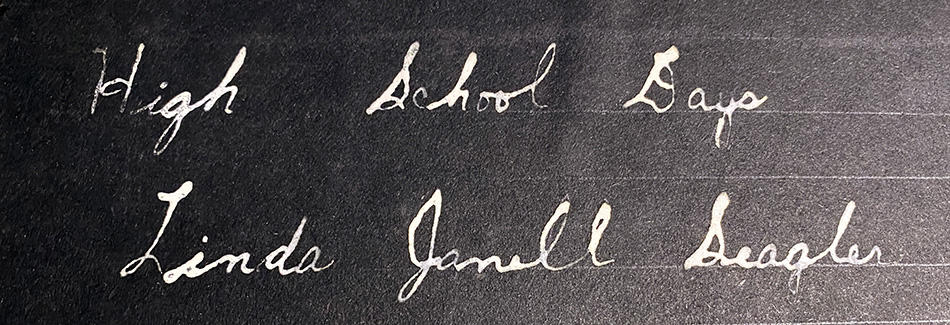 High School Days
Linda Janell Seagler